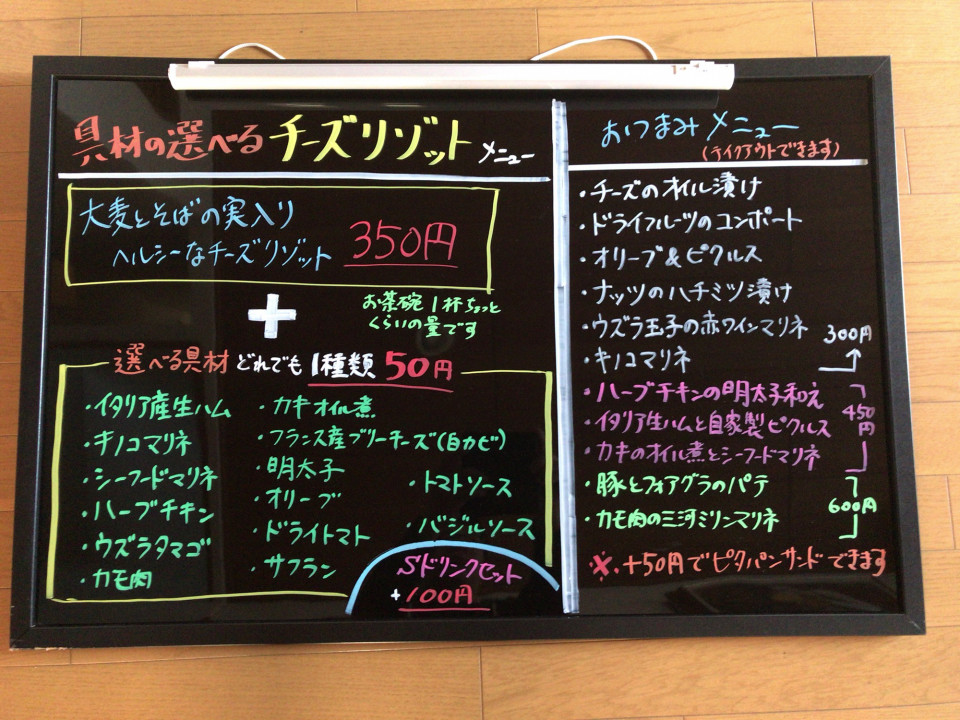 具材の選べるチーズリゾットメニュー
大麦とそばの実入り
ヘルシーなチーズリゾット 350円
+
お茶碗1杯ちょっと
くらいの量です
選べる具材 どれでも 1種類 50円
・イタリア産生ハム
・キノコマリネ
・シーフードマリネ
・ハーブチキン
・ウズラタマゴ
・カモ肉
・カキオイル煮
・フランス産ブリーチーズ(白カビ)
・明太子
・オリーブ
・ドライトマト
・サフラン
・トマトソース
・バジルソース
Sドリンクセット
+100円
おつまみメニュー
(テイクアウトできます)
・チーズのオイル漬け
・ドライフルーツのコンポート
・オリーブ&ピクルス
・ナッツのハチミツ漬け
・ウズラ玉子の赤ワインマリネ
・キノコマリネ
300円
・ハーブチキンの明太子和え
・イタリア生ハムと自家製ピクルス
・カキのオイル煮とシーフードマリネ
450円
・豚とフォアグラのパテ
・カモ肉の三河ミリンマリネ
600円
※.+50円でピタパンサンドできます